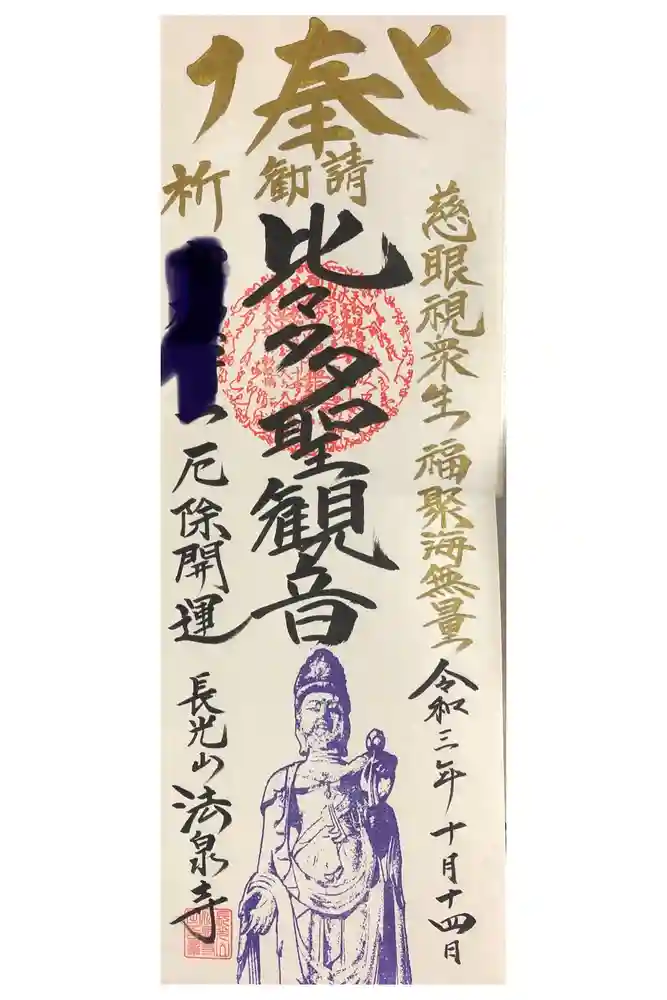 奉
勧請
慈眼視衆生 福聚海無量
令和三年十月十四日
比々多聖観音
祈
厄除開運
長光山 法泉寺